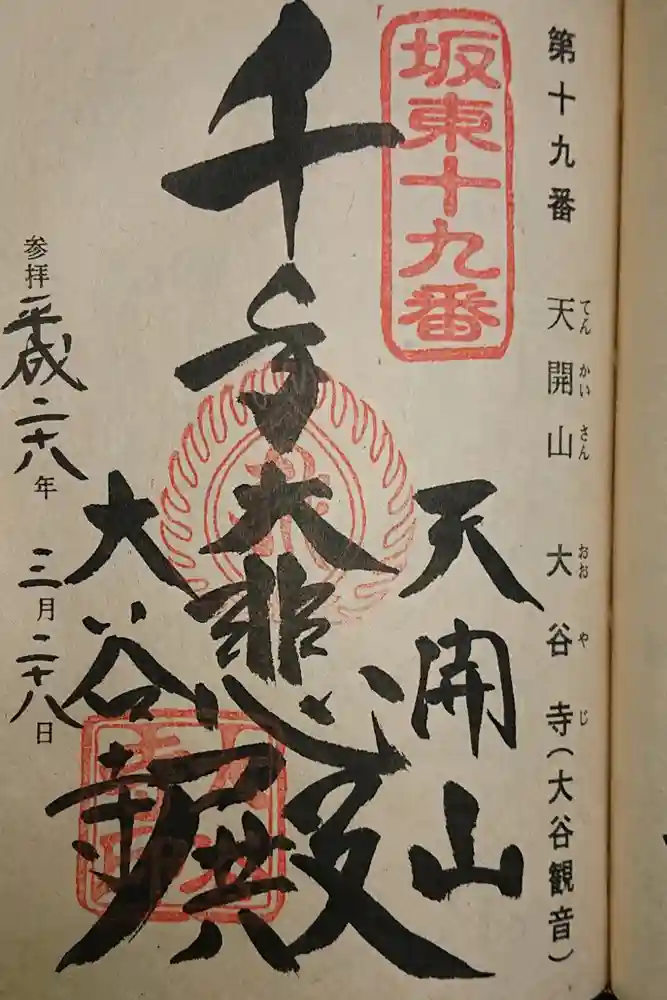 第十九番 天開山 大谷寺(大谷観音)
てんかいさん おおやじ
坂東十九番
天開山
千手大悲殿
大谷寺
参拝 平成二十八年 三月二十八日